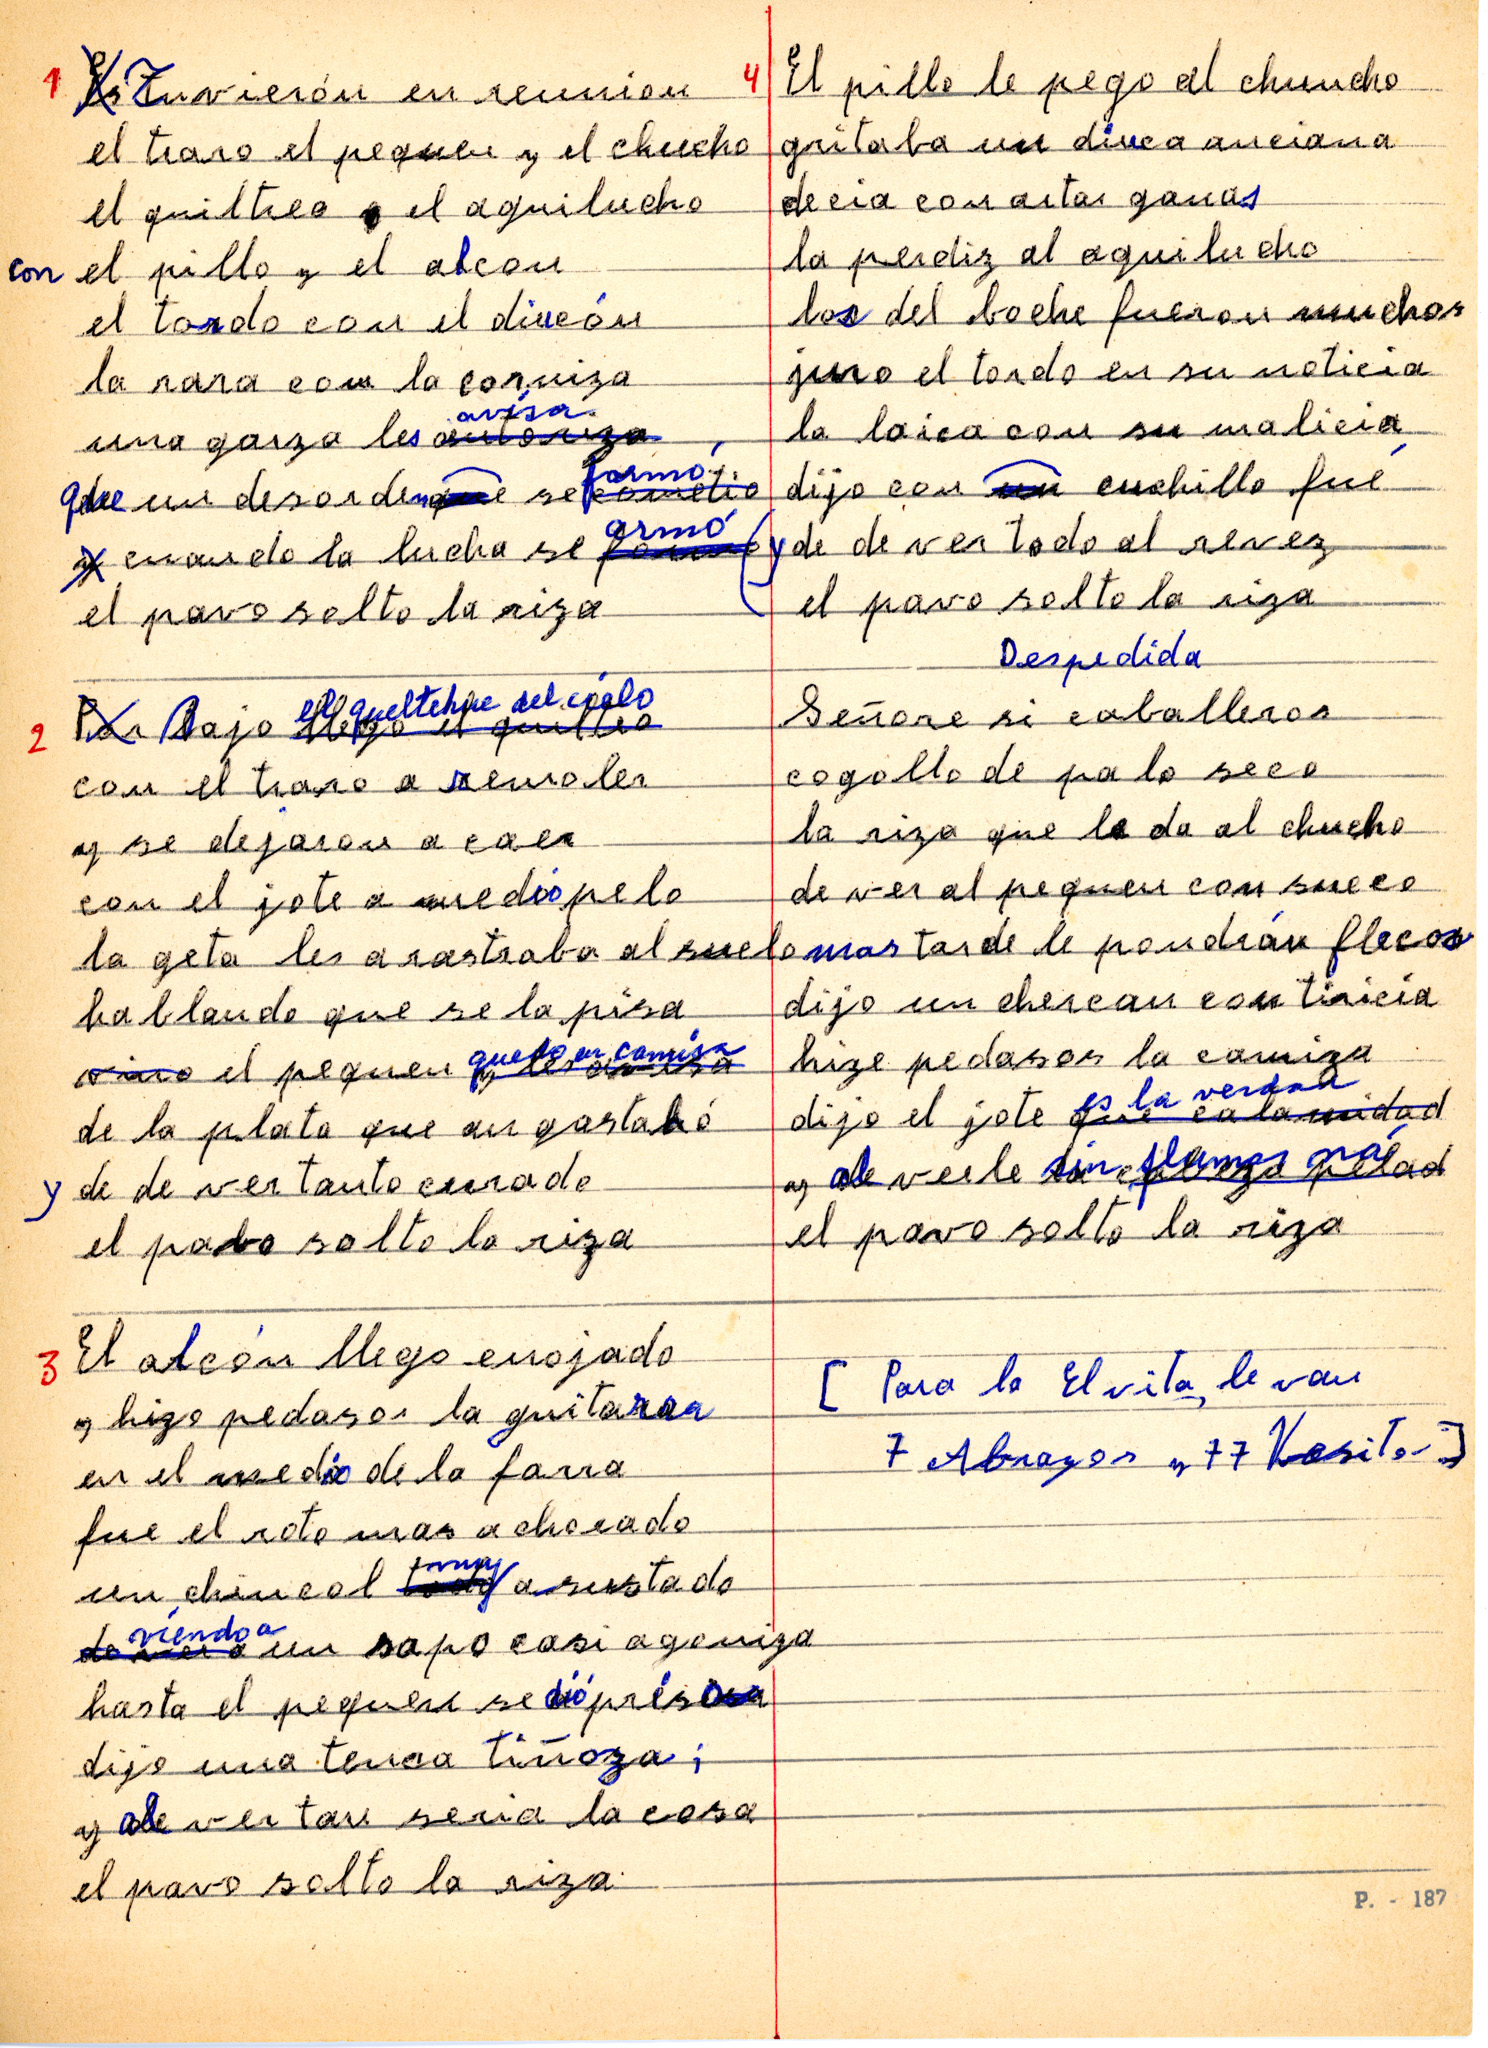 1 Tuvierón en reunion
el traro el pequen y el chucho
el quiltreo el aguilucho
con el pillo y el alcon
el tordo con el diucón
la rara con la corniza
una garza les avisa
que un desorden se formó
cuando la lucha se armó
el pavo solto la riza
2 Bajo el queltehue del cielo
con el traro a remoler
y se dejaron a caer
con el jote a medio pelo
la geta les arastraba al suelo
hablando que se la pisa
el pequen quedo en camisa
de la plata que an gastado
y de de ver tanto curado
el pavo solto la riza
3 El alcón llego enojado
y hizo pedasos la guitarra
en el medio de la farra
fue el roto mas achorado
un chincol muy asustado
viendo a un sapo casi agoniza
hasta el pequen se dió présa
dijo una tenca tiñoza;
y al ver tan seria la cosa
el pavo solto la riza
4 El pillo le pego al chuncho
gritaba un diuca anciana
decia con artas ganas
la perdiz al aguilucho
los del boche fueron muchos
juro el tordo en su noticia
la loica con su malicia
dijo con cuchillo fué
y de de ver todo al revez
el pavo solto la riza
Despedida
Señore si caballeros
cogollo de palo seco
la riza que le da al chucho
de ver al pequen con sueco
mas tarde le pondrán flecos
dijo un chercan con tiricia
hize pedasos la camiza
dijo el jote es la verdad
y al verle sin plumas ná
el pavo soltó la riza
[ Para la Elvita, le van
7 Abrazos y 77 Vesitos ]
P. - 187